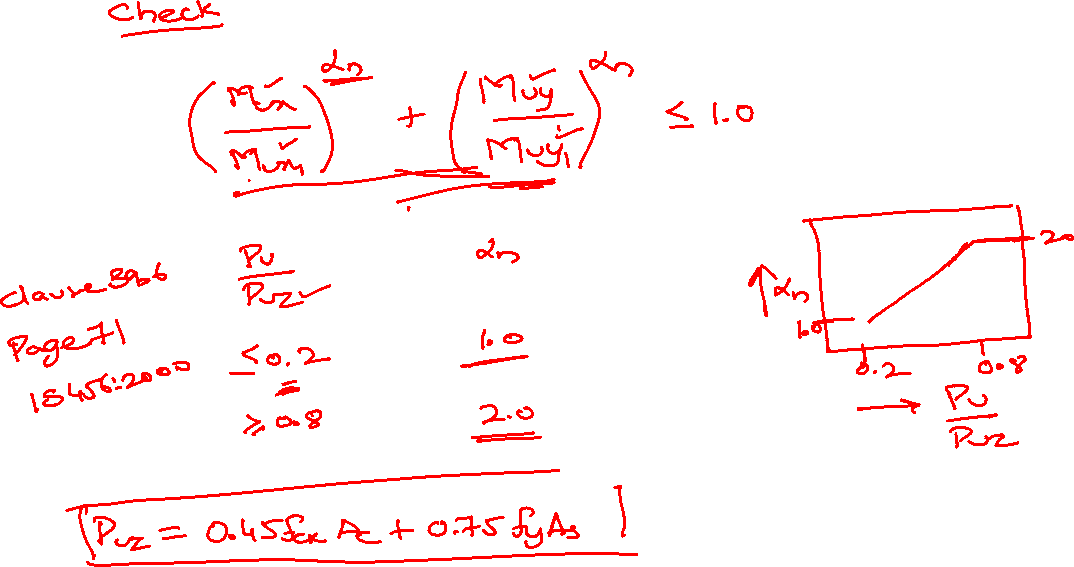 Check
(Mux / Mux1)^αn + (Muy / Muy1)^αn ≤ 1.0
Clause 39.6
Page 71
IS 456:2000
Pu / Puz αn
≤ 0.2 1.0
≥ 0.8 2.0
2.0
↑ αn
1.0
0.2 0.8
→ Pu / Puz
Puz = 0.45 fck Ac + 0.75 fy As